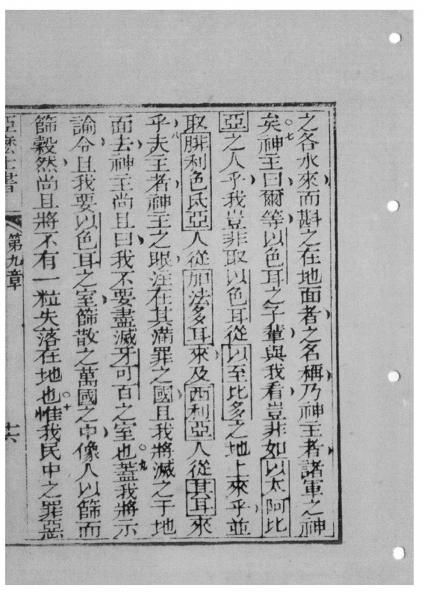 之各水來而斟之在地面者之名稱乃神王者諸軍之神
矣○七神王曰爾等以色耳之子輩與我看豈非如以太阿比
亞之人乎我豈非取以色耳從以至比多之地上來乎並
取腓利色氏亞人從加法多耳來及西利亞人從其耳來
乎○八夫王者神王之眼注在其滿罪之國且我將滅之于地
面去神主尚且曰我不要盡滅牙可百之室也○九蓋我將示
諭今且我要以色耳之室篩散之萬國之中像人以篩而
篩穀然尚且將不有一粒失落在地也○十惟我民中之罪惡
亞麽士書 第九章 十六